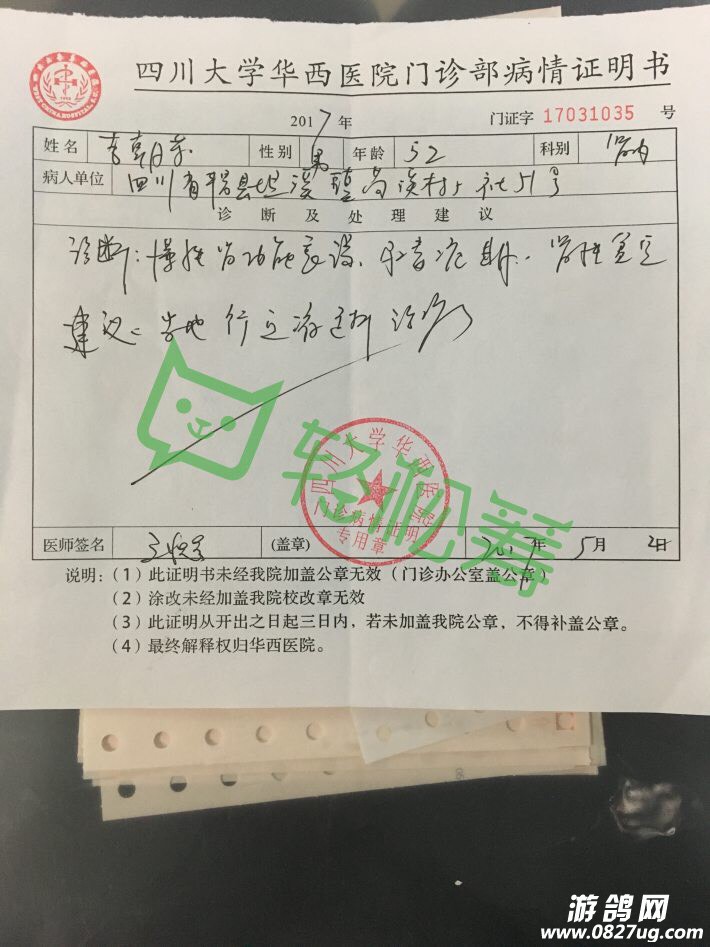 四川大学华西医院门诊部病情证明书
WEST CHINA HOSPITAL
2017年 门证字 17031035 号
姓名 李朝东 性别 男 年龄 52 科别 肾内
病人单位 四川省平昌县坦溪 村 社51号
诊断及处理建议
诊断:慢性肾功能衰竭、尿毒症期、肾性贫血
建议:当地行血液透析治疗
轻松筹
四川大学华西医院
门诊病情证明
专用章
医师签名 (盖章) 2017年5月2日
说明:(1)此证明书未经我院加盖公章无效(门诊办公室盖公章)
(2)涂改未经加盖我院校改章无效
(3)此证明从开出之日起三日内,若未加盖我院公章,不得补盖公章。
(4)最终解释权归华西医院。
游鸽网
www.0827ug.com